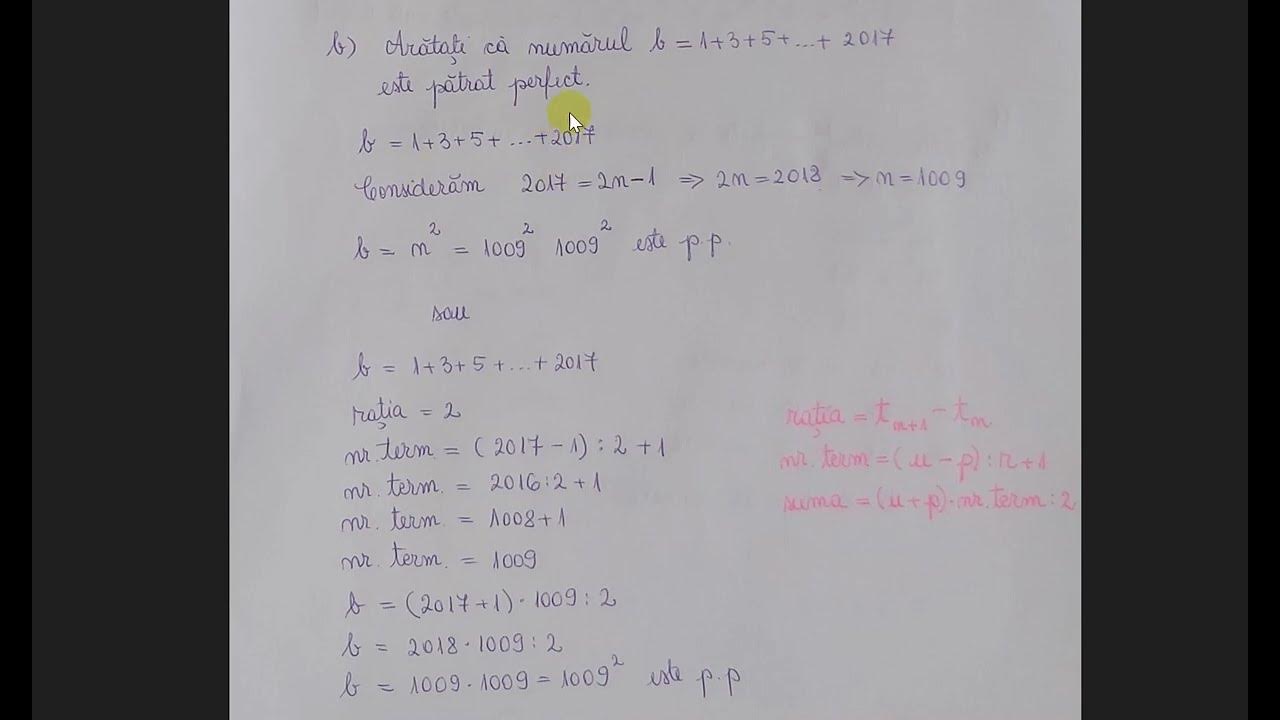 b) Arătați că numărul b = 1+3+5+...+ 2017
este pătrat perfect.
b = 1+3+5+ ...+2017
Considerăm 2017 = 2n-1 => 2n = 2018 => n = 1009
b = n² = 1009² 1009² este p.p.
sau
b = 1+3+5 +...+ 2017
rația = 2
nr. term = (2017 - 1) : 2 + 1
nr. term. = 2016 : 2 + 1
nr. term = 1008+1
nr. term. = 1009
b = (2017+1) · 1009 : 2
b = 2018 · 1009 : 2
b = 1009 · 1009 = 1009² este p.p
rația = t_{n+1} - t_n
nr. term = (u - p) : r + 1
suma = (u + p) · nr. term : 2